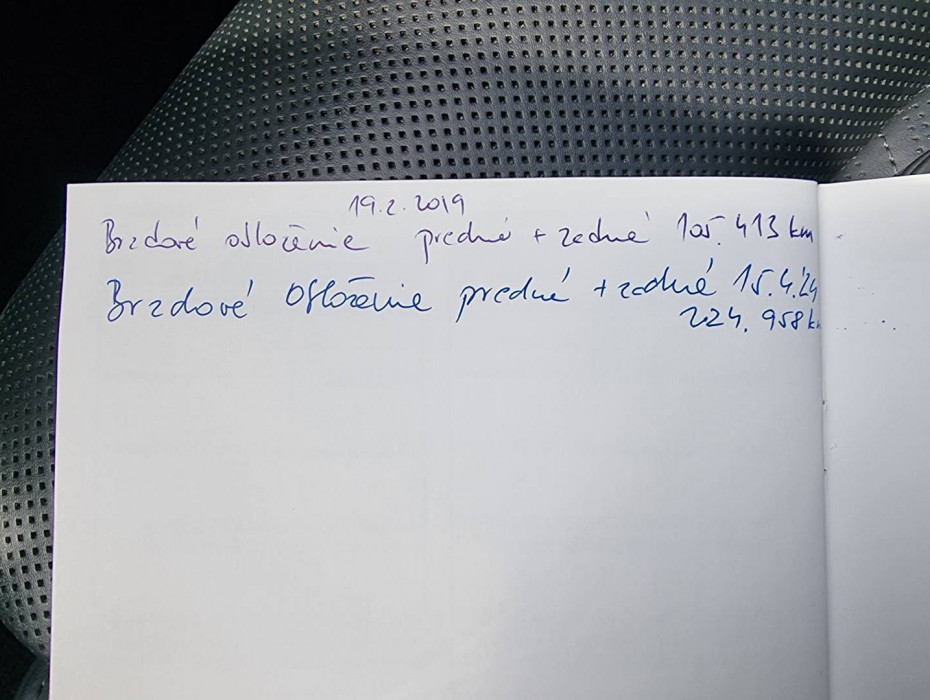 19.2.2019
Brzdové obloženie predné + zadné 105.413 km
Brzdové obloženie predné + zadné 15.4.'24
224.958 k